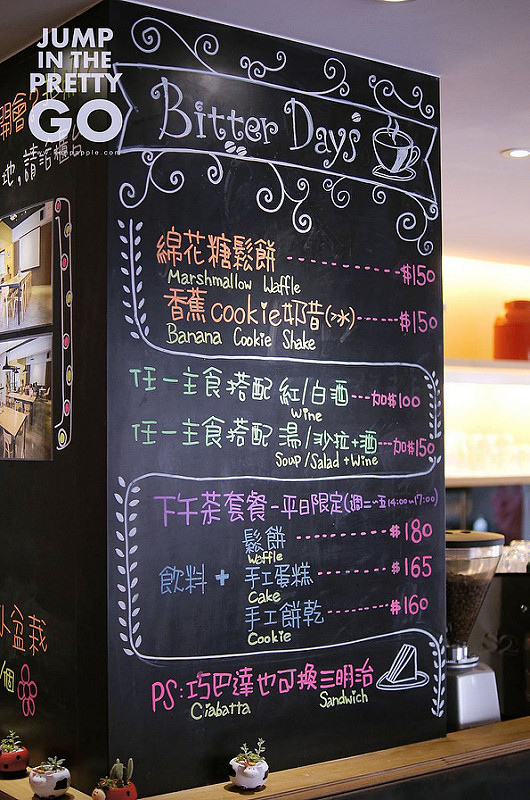 JUMP
IN THE
PRETTY
GO
地,請洽櫃台
Bitter Days
綿花糖鬆餅 $150
Marshmallow Waffle
香蕉cookie奶昔(冰) $150
Banana Cookie Shake
任一主食搭配 紅/白酒 加$100
wine
任一主食搭配 湯/沙拉+酒 加$150
Soup/Salad+Wine
下午茶套餐-平日限定(週二~五14:00~17:00)
鬆餅 $180
Waffle
飲料 + 手工蛋糕 $165
Cake
手工餅乾 $160
Cookie
PS:巧巴達也可換三明治
Ciabatta Sandwich
盆栽
/個